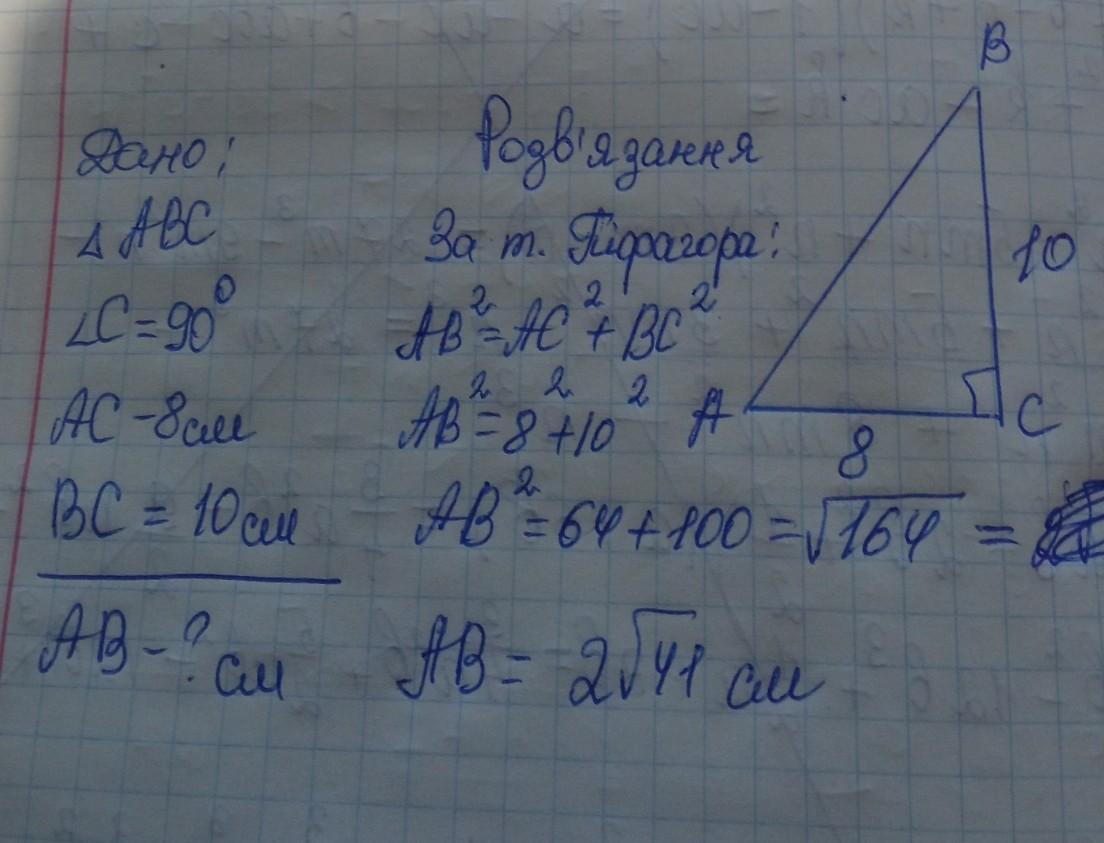 Дано:
△ ABC
∠C = 90°
AC - 8см
BC = 10см
AB - ? см
Розв'язання
За т. Піфагора:
AB² = AC² + BC²
AB² = 8² + 10²
AB² = 64 + 100 = √164 =
AB = 2√41 см
B
10
A
8
C